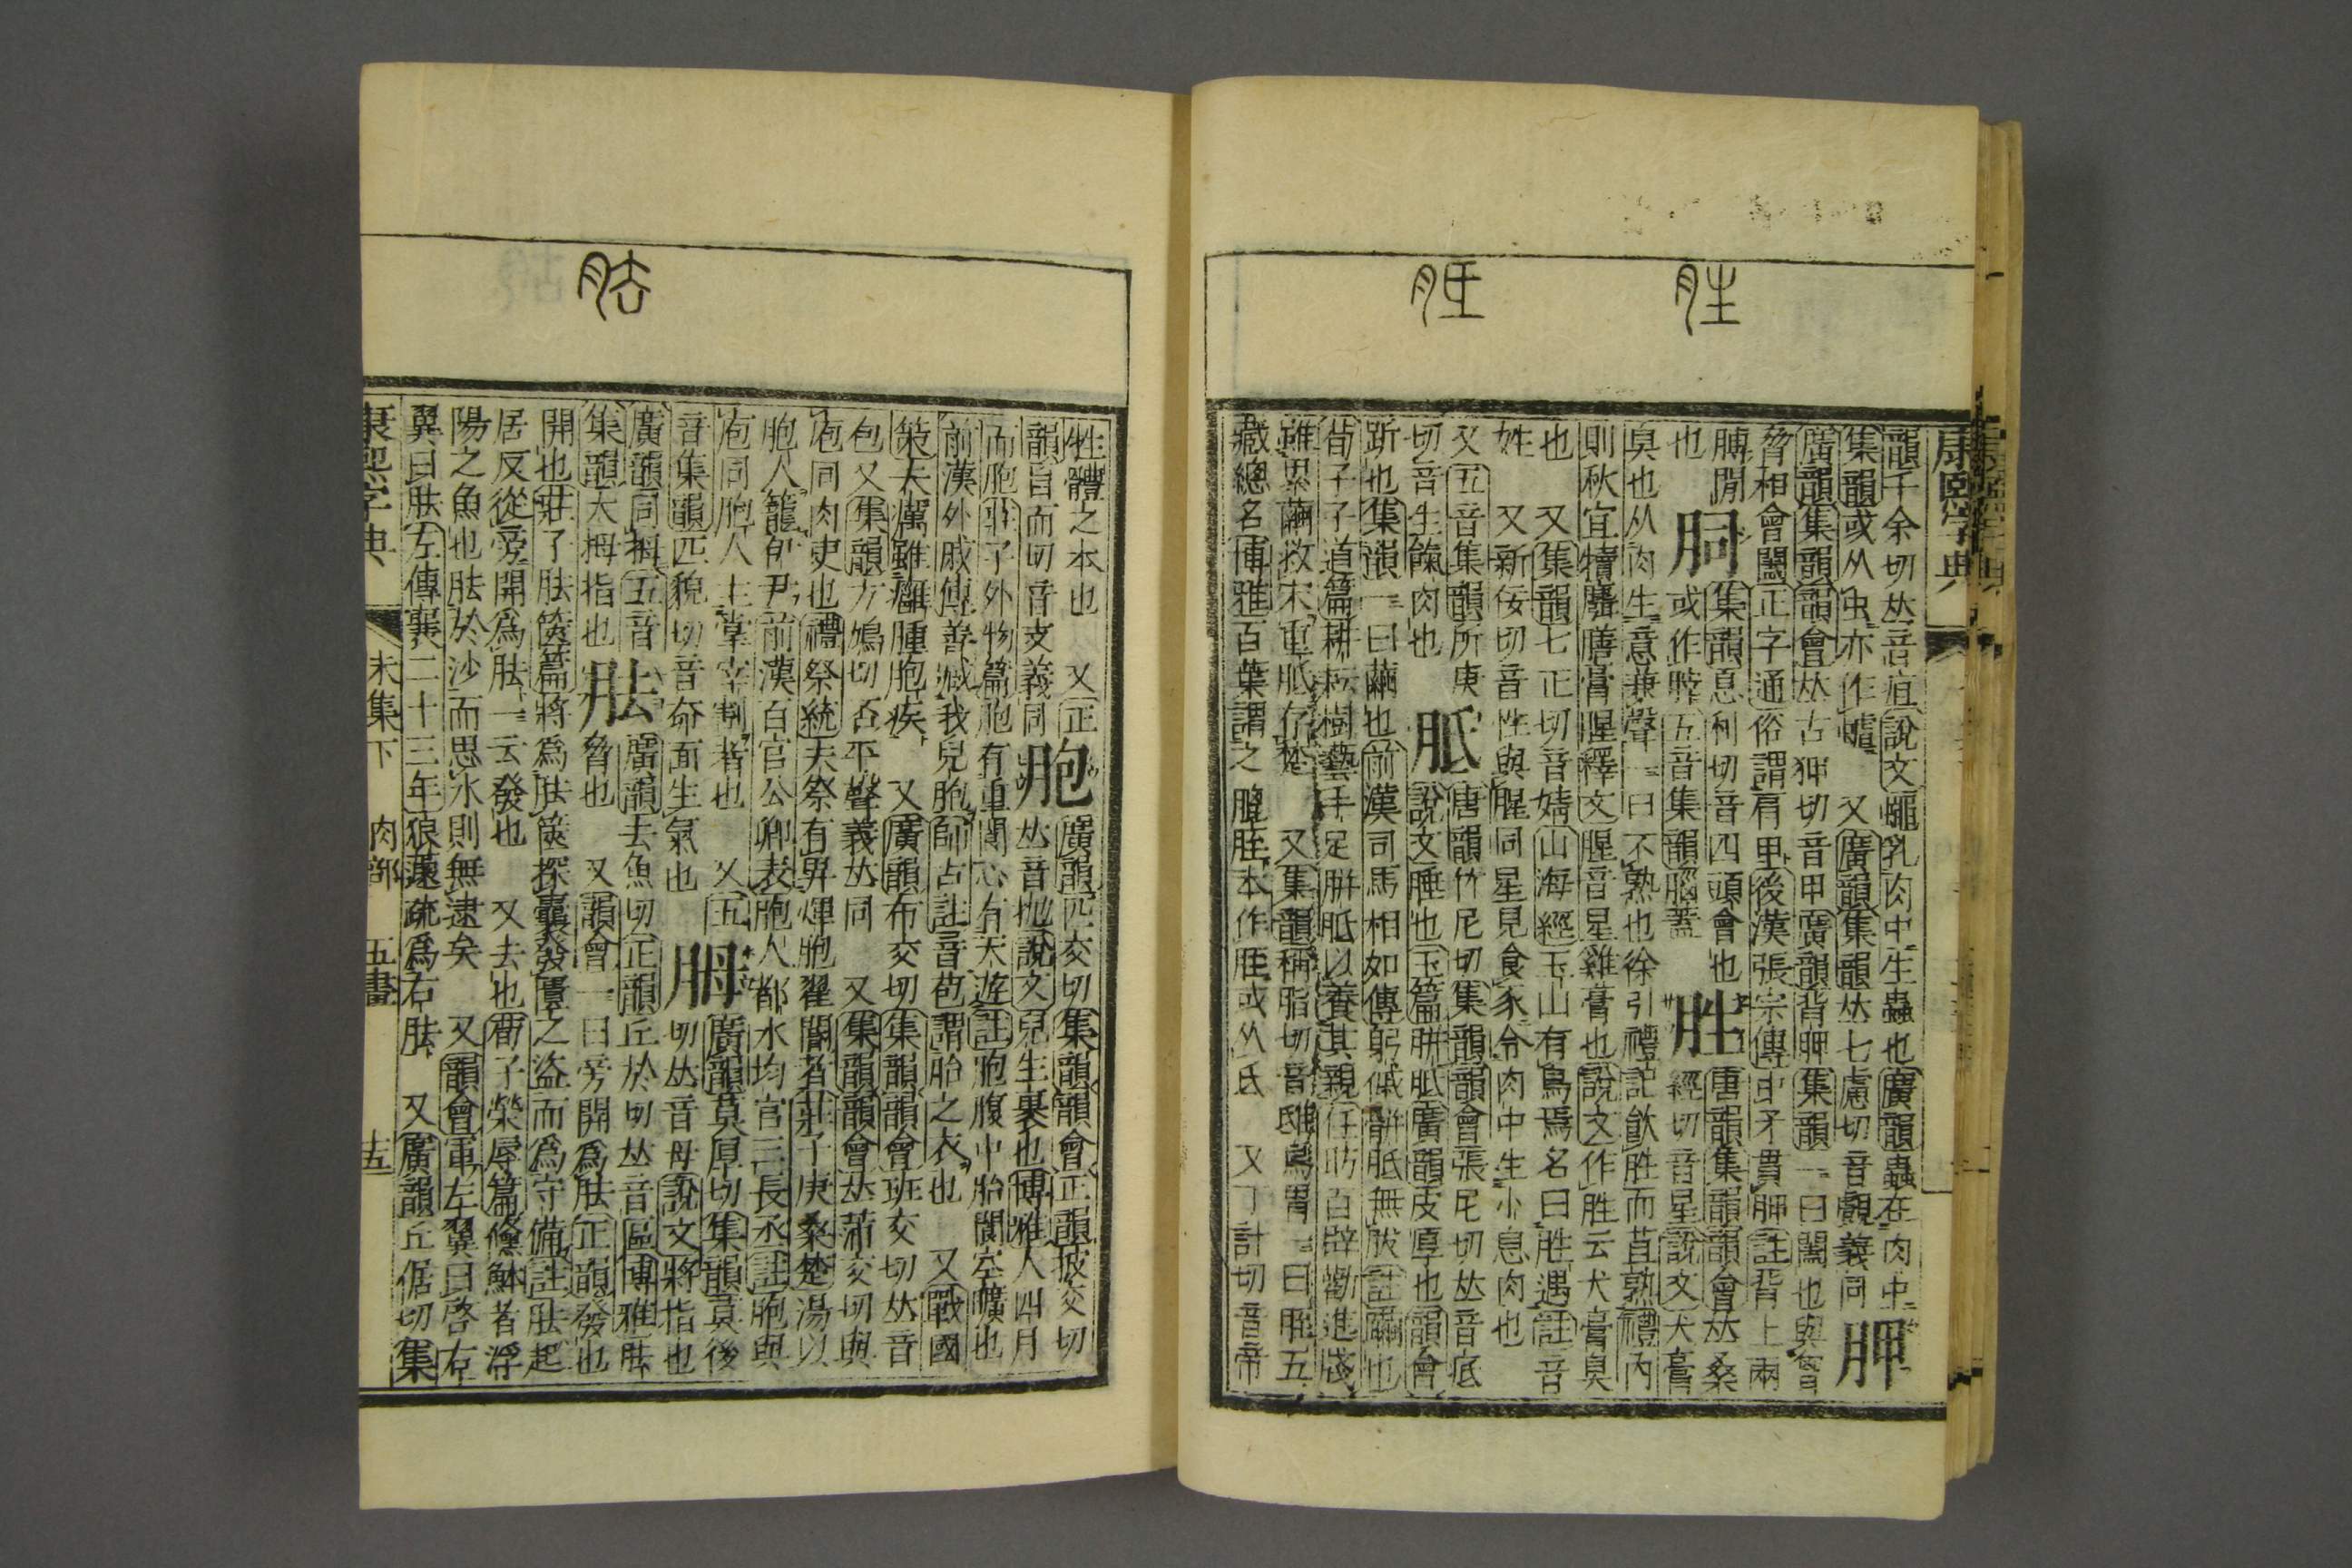 胜
胝
康熙字典
韻千余切𠀤音疽說文蠅乳肉中生蟲也廣韻蟲在肉中
集韻或从虫亦作蛆 又廣韻集韻𠀤七慮切音覰義同 胛
廣韻集韻韻會𠀤古狎切音甲廣韻背胛集韻一曰闔也與胷
脅相會闔正字通俗謂肩甲後漢張宗傳中矛貫胛註背上兩
膊閒 胴 集韻息利切音四頭會也 胜 唐韻集韻韻會𠀤桑
也 或作𦙞五音集韻腦蓋 經切音星說文犬膏
臭也从肉生意兼聲一曰不熟也徐引禮記飮胜而苴熟禮內
則秋宜犢麛膳膏腥釋文腥音星雞膏也說文作胜云犬膏臭
也 又集韻七正切音婧山海經玉山有鳥焉名曰胜遇註音
姓 又新佞切音性與腥同星見食豕令肉中生小息肉也
又五音集韻所庚 胝 唐韻竹尼切集韻韻會張尼切𠀤音疷
切音生䐹肉也 說文腄也玉篇胼胝廣韻皮厚也韻會
䟫也集韻一曰繭也前漢司馬相如傳躬傶骿胝無胈註繭也
荀子子道篇耕耘樹藝手足胼胝以養其親任昉百辟勸進牋
雖累繭救宋重胝存楚 又集韻稱脂切音鴟鳥胃一曰胵五
藏總名博雅百葉謂之膍胵本作胵或从氐 又丁計切音帝
胠
牲體之本也 又正 胞 廣韻匹交切集韻韻會正韻披交切
韻旨而切音支義同 𠀤音抛說文兒生裹也博雅人四月
而胞莊子外物篇胞有重閬心有天遊註胞腹中胎閬空曠也
前漢外戚傳善臧我兒胞師古註音苞謂胎之衣也 又戰國
策夫癘雖癰腫胞疾 又廣韻布交切集韻韻會班交切𠀤音
包又集韻方鳩切否平聲義𠀤同 又集韻韻會𠀤蒲交切與
庖同肉吏也禮祭統夫祭有畀煇胞翟閽者莊子庚桑楚湯以
胞人籠伊尹前漢百官公卿表胞人都水均官三長丞註胞與
庖同胞人主掌宰割者也 又五 胟 廣韻莫厚切集韻莫後
音集韻匹貌切音奅面生氣也 切𠀤音母說文將指也
廣韻同拇五音 胠 廣韻去魚切正韻丘於切𠀤音區博雅胠
集韻大拇指也 脅也 又韻會一曰旁開爲胠正韻發也
開也莊子胠篋篇將爲胠篋探囊發匱之盜而爲守備註胠起
居反從旁開爲胠一云發也 又去也荀子榮辱篇鯈䱁者浮
陽之魚也胠於沙而思水則無逮矣 又韻會軍左翼曰啓右
翼曰胠左傳襄二十三年狼蘧疏爲右胠 又廣韻丘倨切集
康熙字典 未集下 肉部 五畫 十五